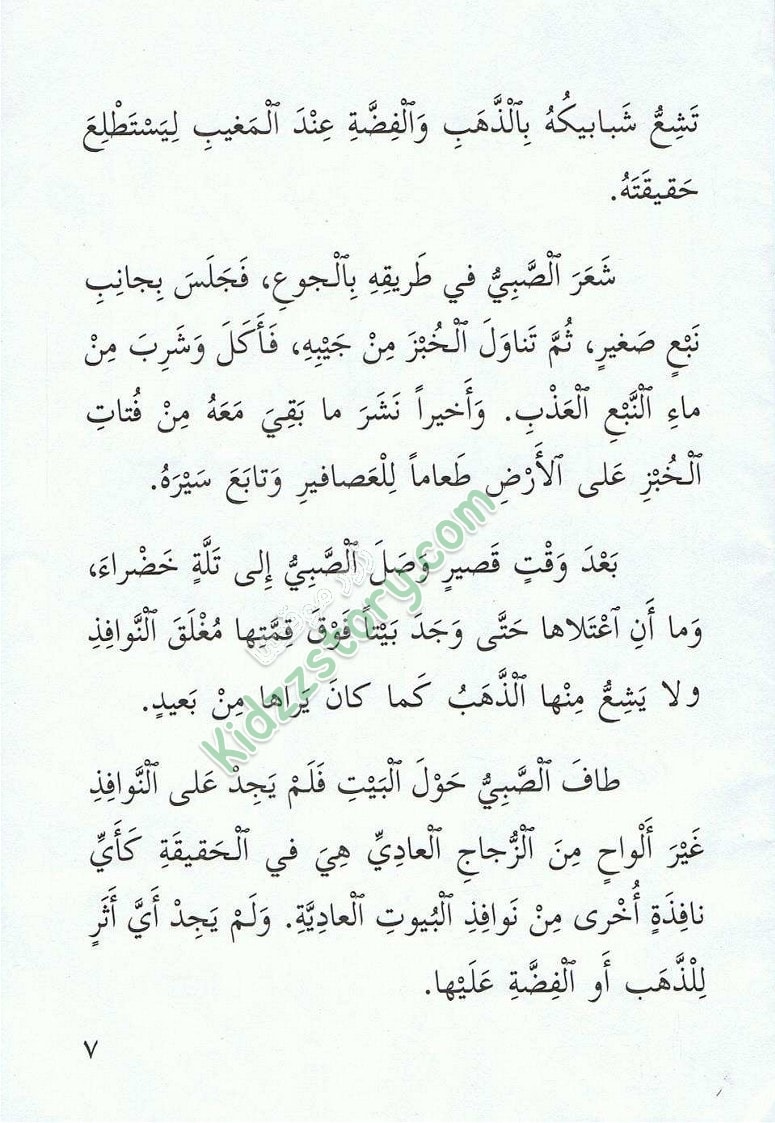 تَشِعُّ شَبابيكُهُ بِٱلْذَّهَبِ وَٱلْفِضَّةِ عِنْدَ ٱلْمَغيبِ لِيَسْتَطْلِعَ
حَقيقَتَهُ.
شَعَرَ ٱلْصَّبِيُّ في طَريقِهِ بِٱلْجوعِ، فَجَلَسَ بِجانِبِ
نَبْعٍ صَغيرٍ، ثُمَّ تَناوَلَ ٱلْخُبْزَ مِنْ جَيْبِهِ، فَأَكَلَ وَشَرِبَ مِنْ
ماءِ ٱلْنَّبْعِ ٱلْعَذْبِ. وَأَخيراً نَشَرَ ما بَقِيَ مَعَهُ مِنْ فُتاتِ
ٱلْخُبْزِ عَلى ٱلأَرْضِ طَعاماً لِلْعَصافيرِ وَتابَعَ سَيْرَهُ.
بَعْدَ وَقْتٍ قَصيرٍ وَصَلَ ٱلْصَّبِيُّ إِلى تَلَّةٍ خَضْراءَ،
وَما أَنِ ٱعْتَلاها حَتَّى وَجَدَ بَيْتاً فَوْقَ قِمَّتِها مُغْلَقَ ٱلْنَّوافِذِ
ولا يَشِعُّ مِنْها ٱلْذَّهَبُ كَما كانَ يَراها مِنْ بَعيدٍ.
طافَ ٱلْصَّبِيُّ حَوْلَ ٱلْبَيْتِ فَلَمْ يَجِدْ عَلى ٱلْنَّوافِذِ
غَيْرَ أَلْواحٍ مِنَ ٱلْزُّجاجِ ٱلْعادِيِّ هِيَ في ٱلْحَقيقَةِ كَأَيِّ
نافِذَةٍ أُخْرى مِنْ نَوافِذِ ٱلْبُيوتِ ٱلْعادِيَّةِ. وَلَمْ يَجِدْ أَيَّ أَثَرٍ
لِلْذَّهَب أَو ٱلْفِضَّةِ عَلَيْها.
٧
Kidzzstory.com